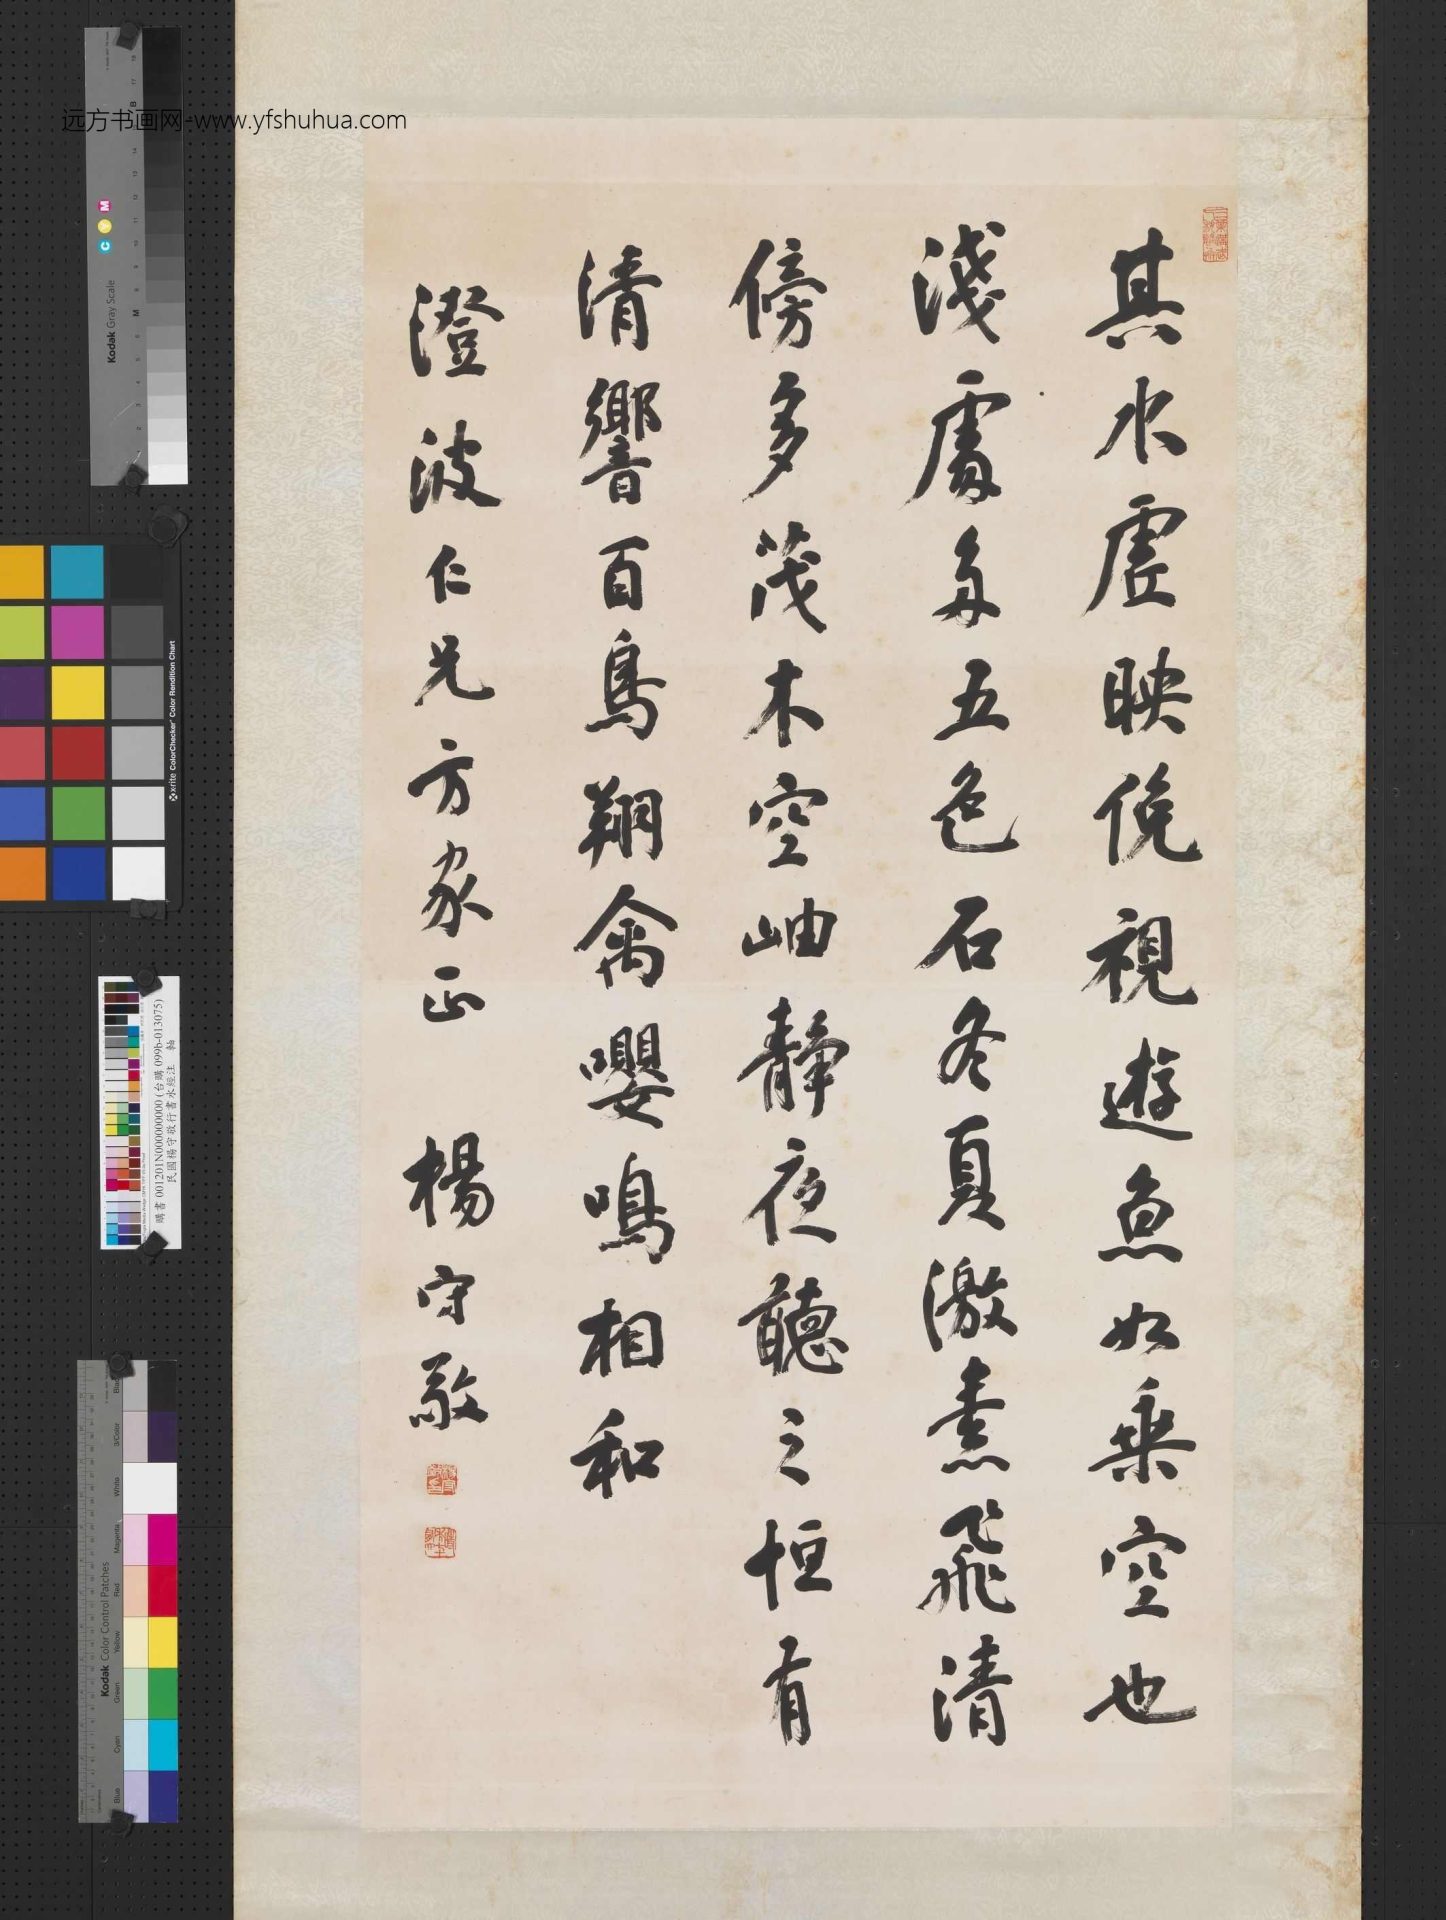 远方书画网-www.yfshuhua.com
其水虛映俯視遊魚如乘空也
淺處多五色石冬夏激素飛清
傍多茂木空岫靜夜聽之恒有
清響百鳥翔禽嚶鳴相和
澄波仁兄方家正 楊守敬
Kodak Gray Scale
C Y M
xrite ColorChecker Color Rendition Chart
購書 001201N000000000 (台購 099b-013075)
民國楊守敬行書水經注 軸
Kodak Color Control Patches
Blue Cyan Green Yellow Red Magenta White 3/Color Black